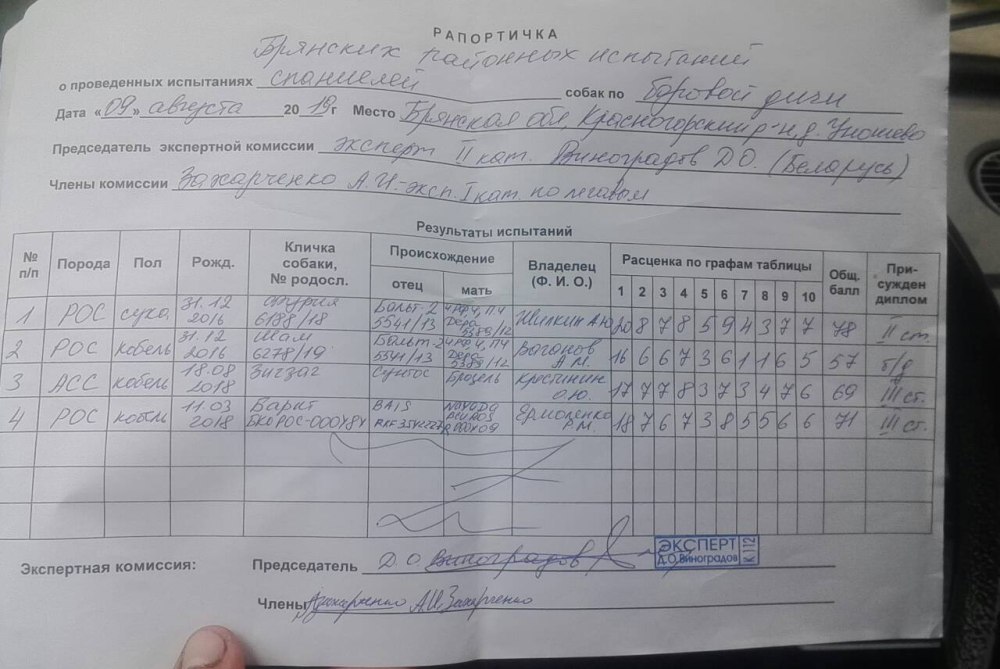 РАПОРТИЧКА
Брянских районных испытаний
о проведенных испытаниях спаниелей собак по боровой дичи
Дата «09» августа 2019г Место Брянская обл, Красногорский р-н, д. Уношево
Председатель экспертной комиссии эксперт II кат. Виноградов Д.О. (Беларусь)
Члены комиссии Захарченко А.И.-эксп. I кат. по легавым
Результаты испытаний
№ п/п Порода Пол Рожд. Кличка собаки, № родосл. Происхождение отец мать Владелец (Ф. И. О.) Расценка по графам таблицы 1 2 3 4 5 6 7 8 9 10 Общ. балл При-сужден диплом
1 РОС сука 31.12 2016 6188/18 Больт-2 5541/13 5389/12 Жилкин А.Ю. 20 8 7 8 5 9 4 3 7 7 78 II ст.
2 РОС кобель 31.12 2016 Шам 6278/19 Больт-2 5541/13 5389/12 Ваганов А.М. 16 6 6 7 3 6 1 1 6 5 57 б/д
3 АСС кобель 18.08 2018 Зигзаг Сунгос Брацель Крестинин О.Ю. 17 7 7 8 3 7 3 4 7 6 69 III ст.
4 РОС кобель 11.03 2018 Варит БКО РОС-000484 BAIS Ермоленко Р.М. 18 7 6 7 3 8 5 5 6 6 71 III ст.
Экспертная комиссия: Председатель Д.О Виноградов
ЭКСПЕРТ
Д.О.Виноградов
К 112
Члены А.И. Захарченко